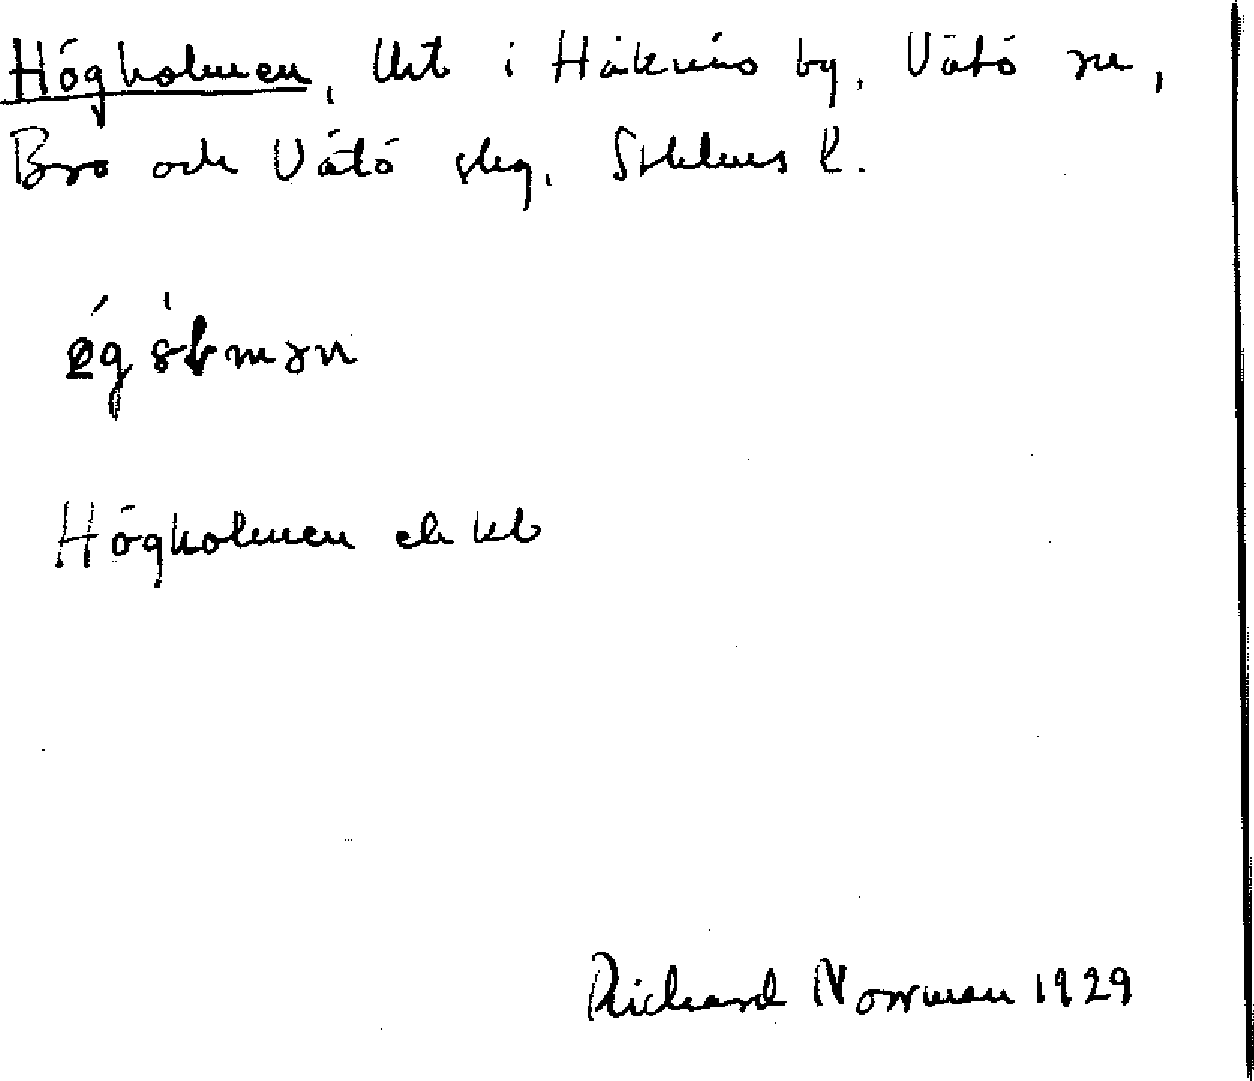 Högholmen, Urt i Håknäs by, Vätö sn,
Bro och Vätö slg, Sthlms l.
Högholmen ek kb
Richard Norrman 1929